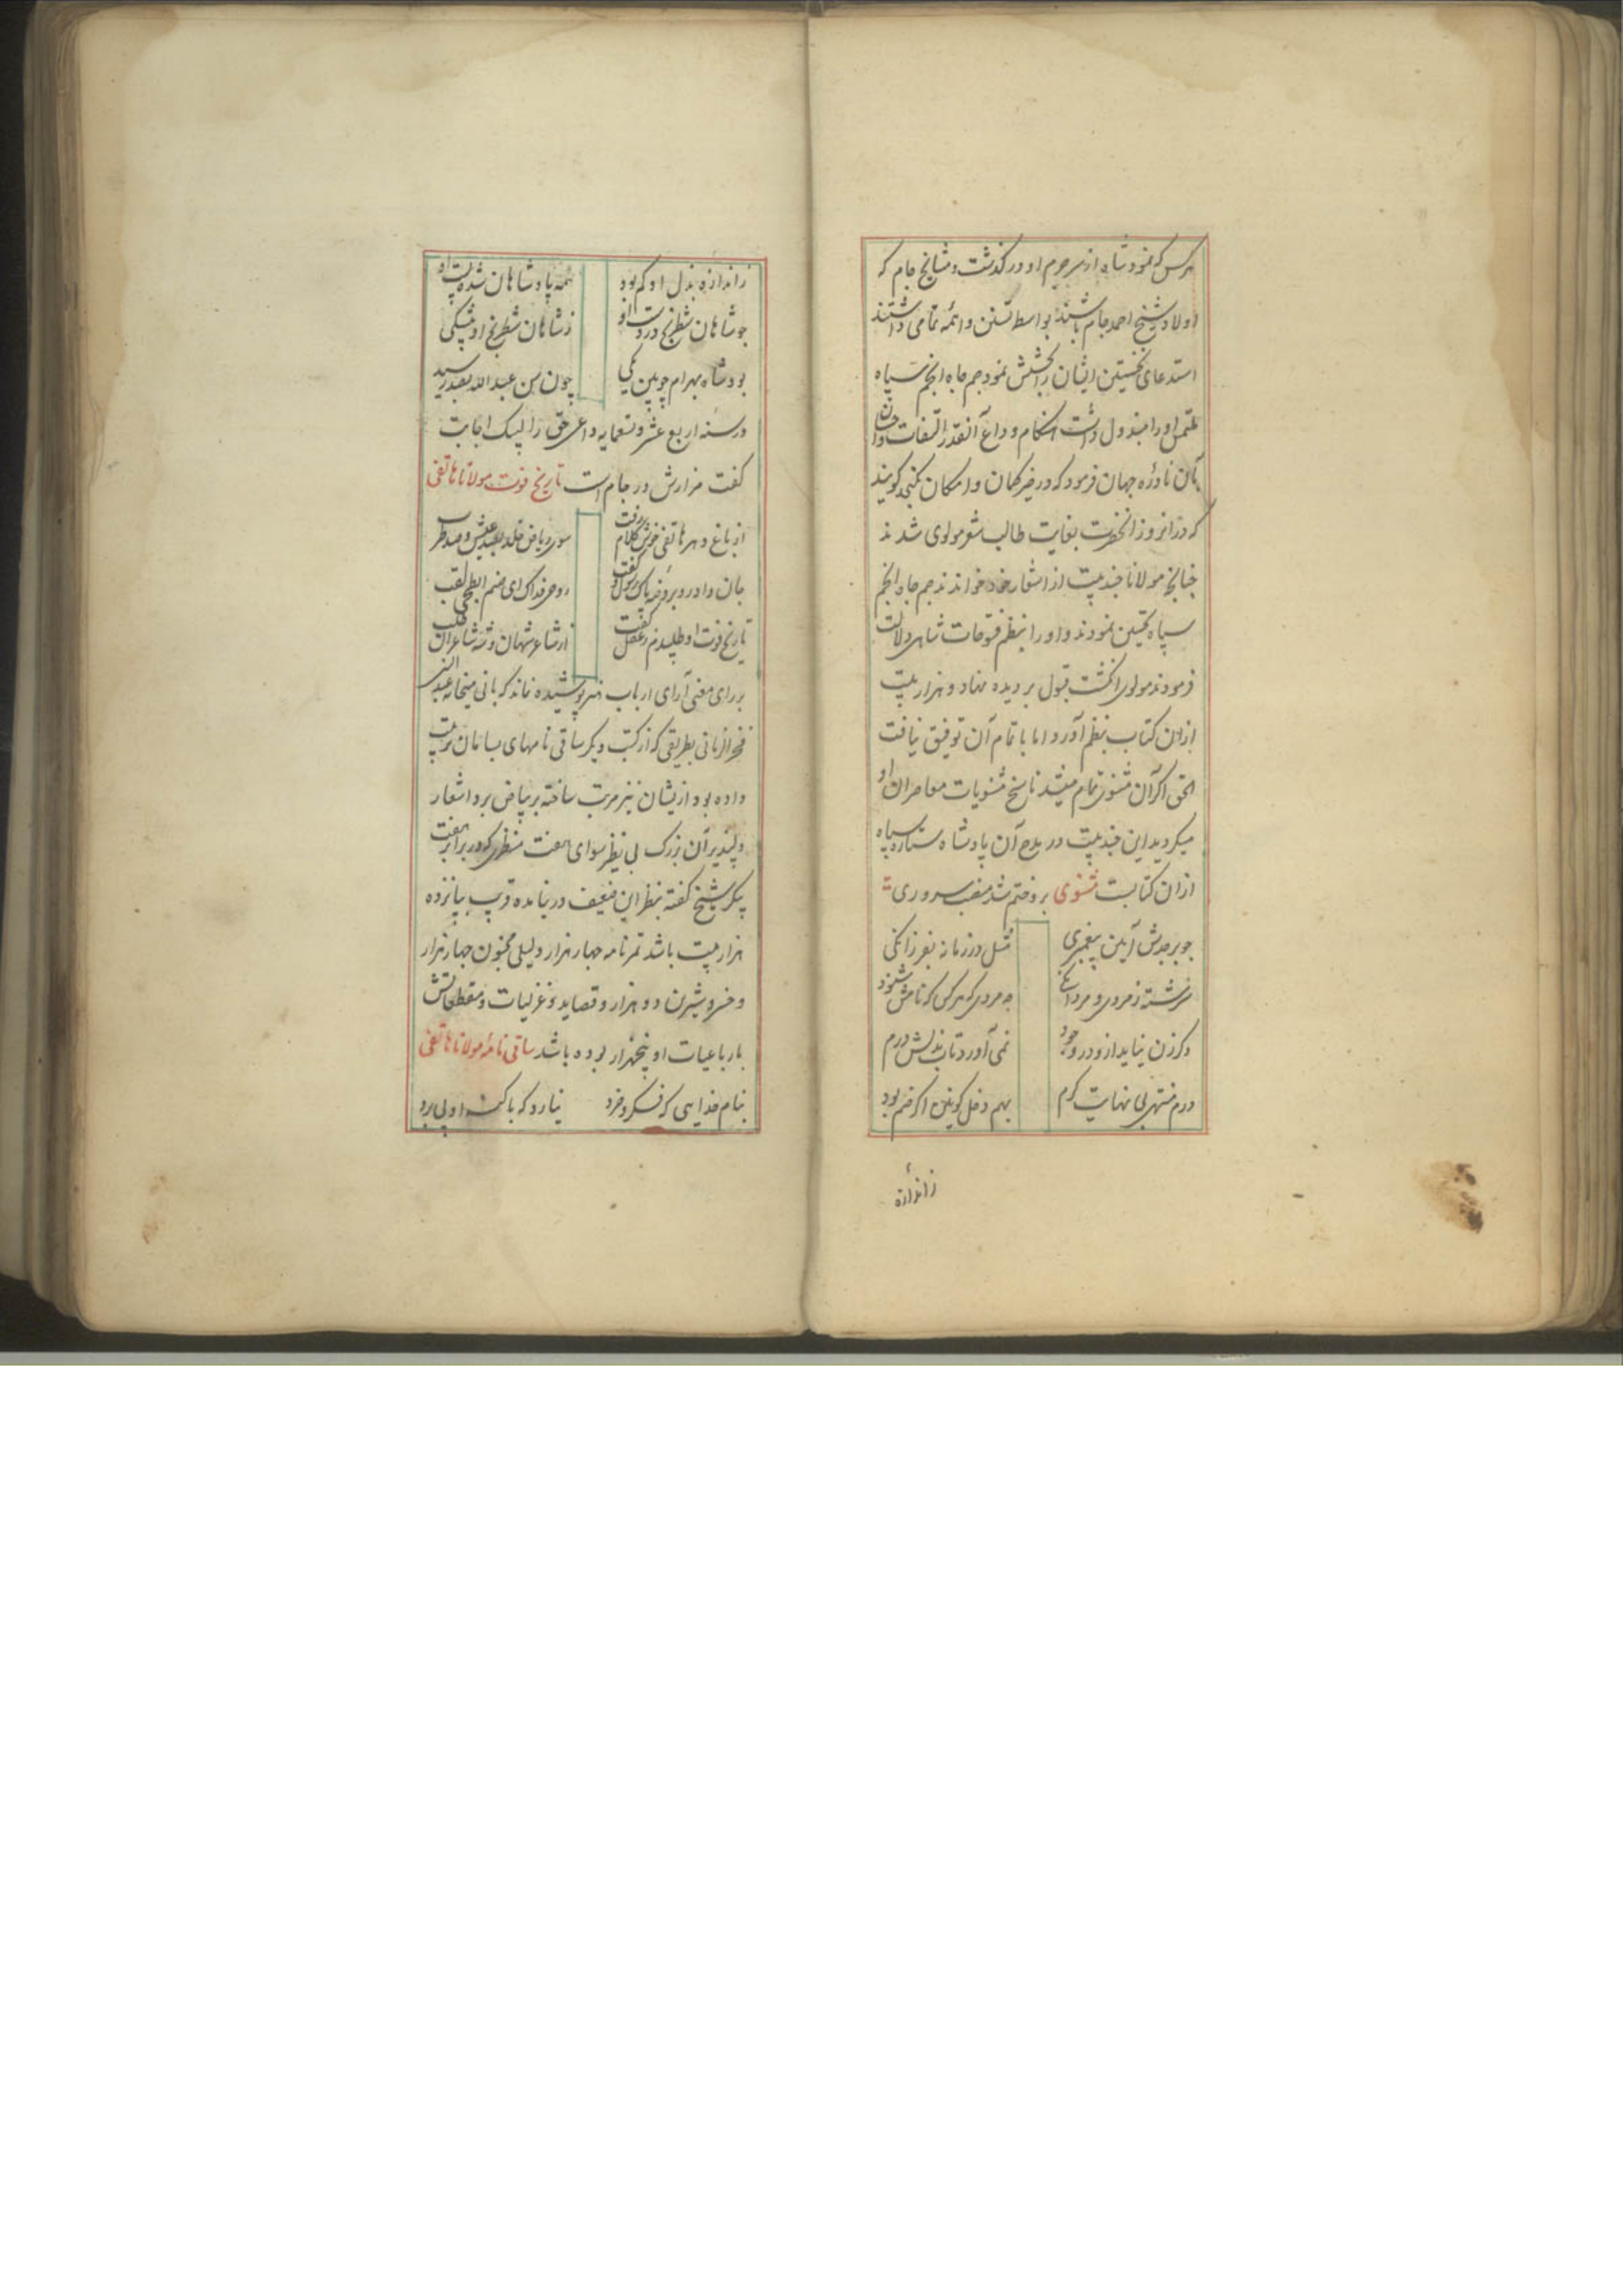 هرکس که نمود شاه از سر جرم او در گذشت و مشایخ جام که
اولاد شیخ احمد جام باشند بواسطه تسنن واهمه تمامی داشتند
استدعای نخستین ایشان را بخشش نمود جم جاه انجم سپاه
ملتمس او را مبذول داشت هنگام وداع آنقدر التفات
بآن نادره جهان فرمود که در ضمیر گمان و امکان نگنجد گویند
که در انروز انحضرت بغایت طالب شعر مولوی شدند
چنانچه مولانا چند بیت از اشعار خود خواندند جم جاه انجم
سپاه تحسین نمودند و او را بنظم فتوحات شاهی دلالت
فرمودند مولوی انگشت قبول بر دیده نهاد و هزار بیت
ازان کتاب بنظم آورد اما باتمام آن توفیق نیافت
الحق اگر آن مثنوی تمام میشد ناسخ مثنویات معاصران او
میگردید این چند بیت در مدح آن پادشاه ستاره سپاه
ازان کتابست مثنوی برو ختم شد منصب سروری
چو بر جدش آیین پیغمبری مثل در زمانه بفرزانگی
سرشته ز مردی و مردانگی چه مردی که هر کس که نامش شنود
دگر زن نیاید ازو در وجود نمی آورد تاب بذلش درم
درم منتهی بی نهایت کرم بهم دخل کونین اگر ضم بود
زاندازه
زاندازه بذل او کم بود همه پادشاهان شده پست او
چو شاهان شطرنج در دست او ز شاهان شطرنج او بیشکی
بود شاه بهرام چوبین یکی چون سن عبد الله بصد رسید
در سنه اربع عشر و تسعمایه داعی حق را لبیک اجابت
گفت مزارش در جام است تاریخ فوت مولانا هاتفی
از باغ دهر هاتفی خوش کلام رفت سوی ریاض خلد بصد عیش و صد طرب
جان داد رو بروضه پاک رسول و گفت روحی فداک ای صنم ابطحی لقب
تاریخ فوت او طلبیدم ز عقل گفت از شاعر شهان و شه شاعران طلب
بر رای معنی آرای ارباب هنر پوشیده نماند که بانی میخانه عبد النبی
فخر الزمانی بطریقی که از کتب دیگر ساقی نامهای بسامان ترتیب
داده بود از یشان نیز مرتب ساخته بر بیاض برد اشعار
دلپذیر آن بزرگ بی نظیر سوای هفت منظر که در برابر هفت
پیکر شیخ گفته بنظر این ضعیف در نیامده قریب بپانزده
هزار بیت باشد تمرنامه چهار هزار و لیلی مجنون چهار هزار
و خسرو شیرین دو هزار و قصاید و غزلیات و مقطعاتش
با رباعیات او پنجهزار بوده باشد ساقی نامه مولانا هاتفی
بنام خدایی که فکر و خرد نیارد که با کنه او پی برد